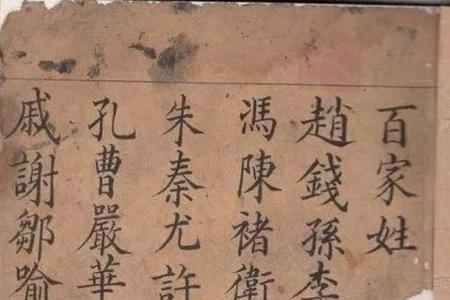 百家姓
趙錢孫李
馮陳褚衛
朱秦尤許
孔曹嚴華
戚謝鄒喻